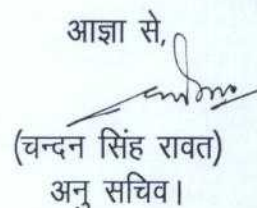 आज्ञा से,
(चन्दन सिंह रावत)
अनु सचिव।